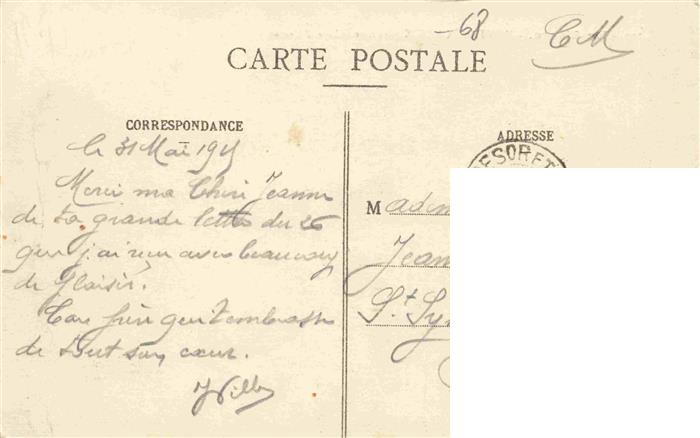 -68
CM
CARTE POSTALE
CORRESPONDANCE
ADRESSE
le 31 Mai 1915
Merci ma Chère Jeanne
de ta grande lettre du 26
que j'ai reçu avec beaucoup
de plaisir.
Ton frère qui t'embrasse
de tout son cœur.
M
Jean
St Sy